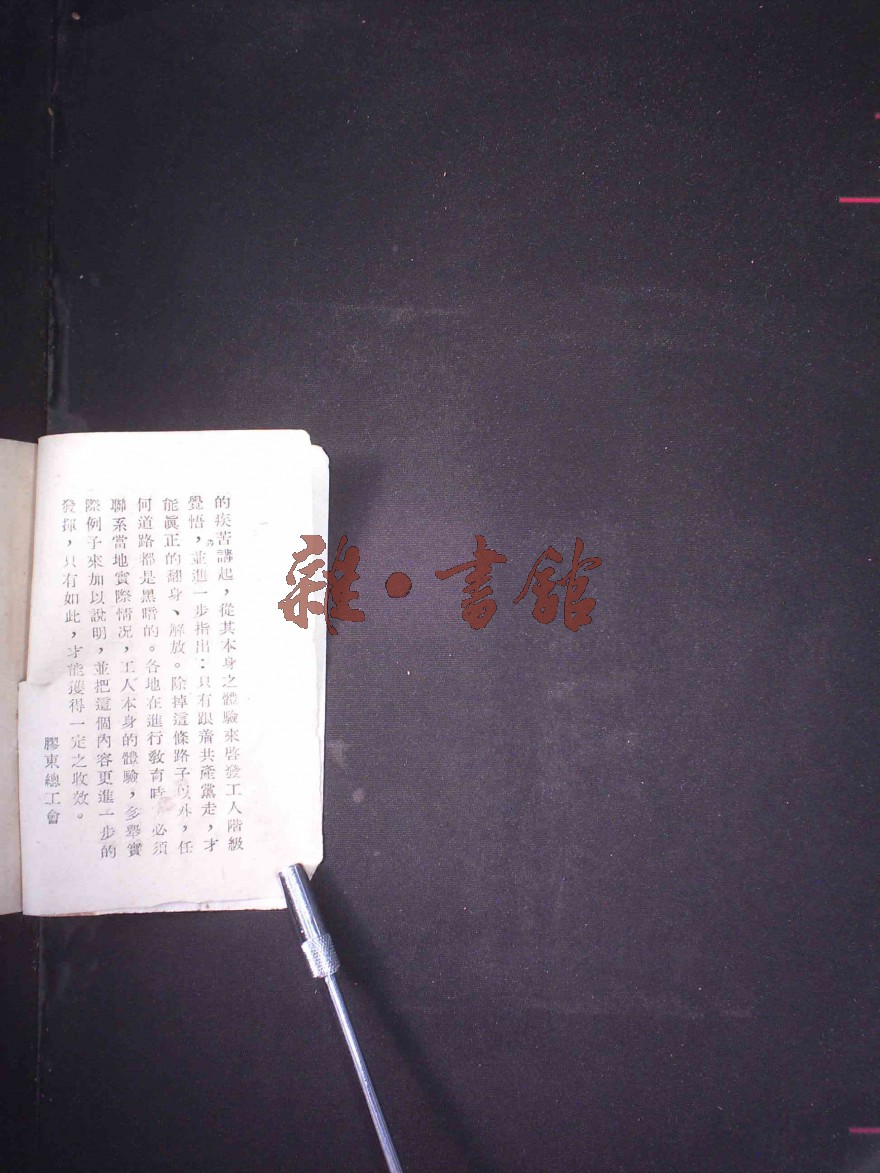 的疾苦講起，從其本身之體驗來啓發工人階級
覺悟，並進一步指出：只有跟着共產黨走，才
能眞正的翻身、解放。除掉這條路子以外，任
何道路都是黑暗的。各地在進行敎育時 必須
聯系當地實際情况，工人本身的體驗，多舉實
際例子來加以說明，並把這個內容更進一步的
發揮，只有如此，才能獲得一定之收效。
膠東總工會
雜·書館